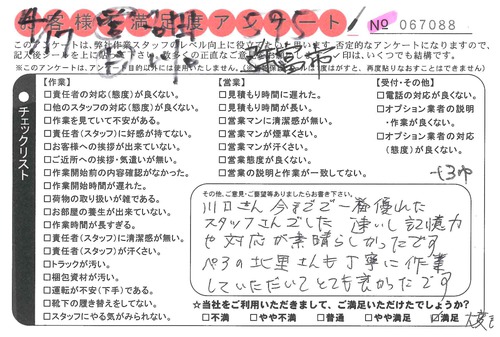 お客様満足度アンケート
№ 067088
4/17
このアンケートは、弊社作業スタッフのレベル向上に役立てたいと思います。否定的なアンケートになりますので、
チェックリスト
【作業】
□責任者の対応(態度)が良くない。
□他のスタッフの対応(態度)が良くない。
□作業を見ていて不安がある。
□責任者(スタッフ)に好感が持てない。
□お客様への挨拶が出来ていない。
□ご近所への挨拶・気遣いが無い。
□作業開始前の内容確認がなかった。
□作業開始時間が遅れた。
□荷物の取り扱いが雑である。
□お部屋の養生が出来ていない。
□作業時間が長すぎる。
□責任者(スタッフ)に清潔感が無い。
□責任者(スタッフ)が汗くさい。
□トラックが汚い。
□梱包資材が汚い。
□運転が不安(下手)である。
□靴下の履き替えをしてない。
□スタッフにやる気がみられない。
【営業】
□見積もり時間に遅れた。
□見積もり時間が長い。
□営業マンに清潔感が無い。
□営業マンが煙草くさい。
□営業マンが汗くさい。
□営業態度が良くない。
□営業の説明と作業が一致してない。
【受付・その他】
□電話の対応が良くない。
□オプション業者の説明
・作業が良くない。
□オプション業者の対応
(態度)が良くない。
その他、ご意見・ご要望等ありましたらお書き下さい。
川口さん 今までで一番優れた
スタッフさんでした 速いし記憶力
や対応が素晴らしかったです
ペアの北里さんも丁寧に作業
していただいてとても良かったです
☆当社をご利用いただきまして、ご満足いただけたでしょうか?
□不満 □やや不満 □普通 □やや満足 ☑満足